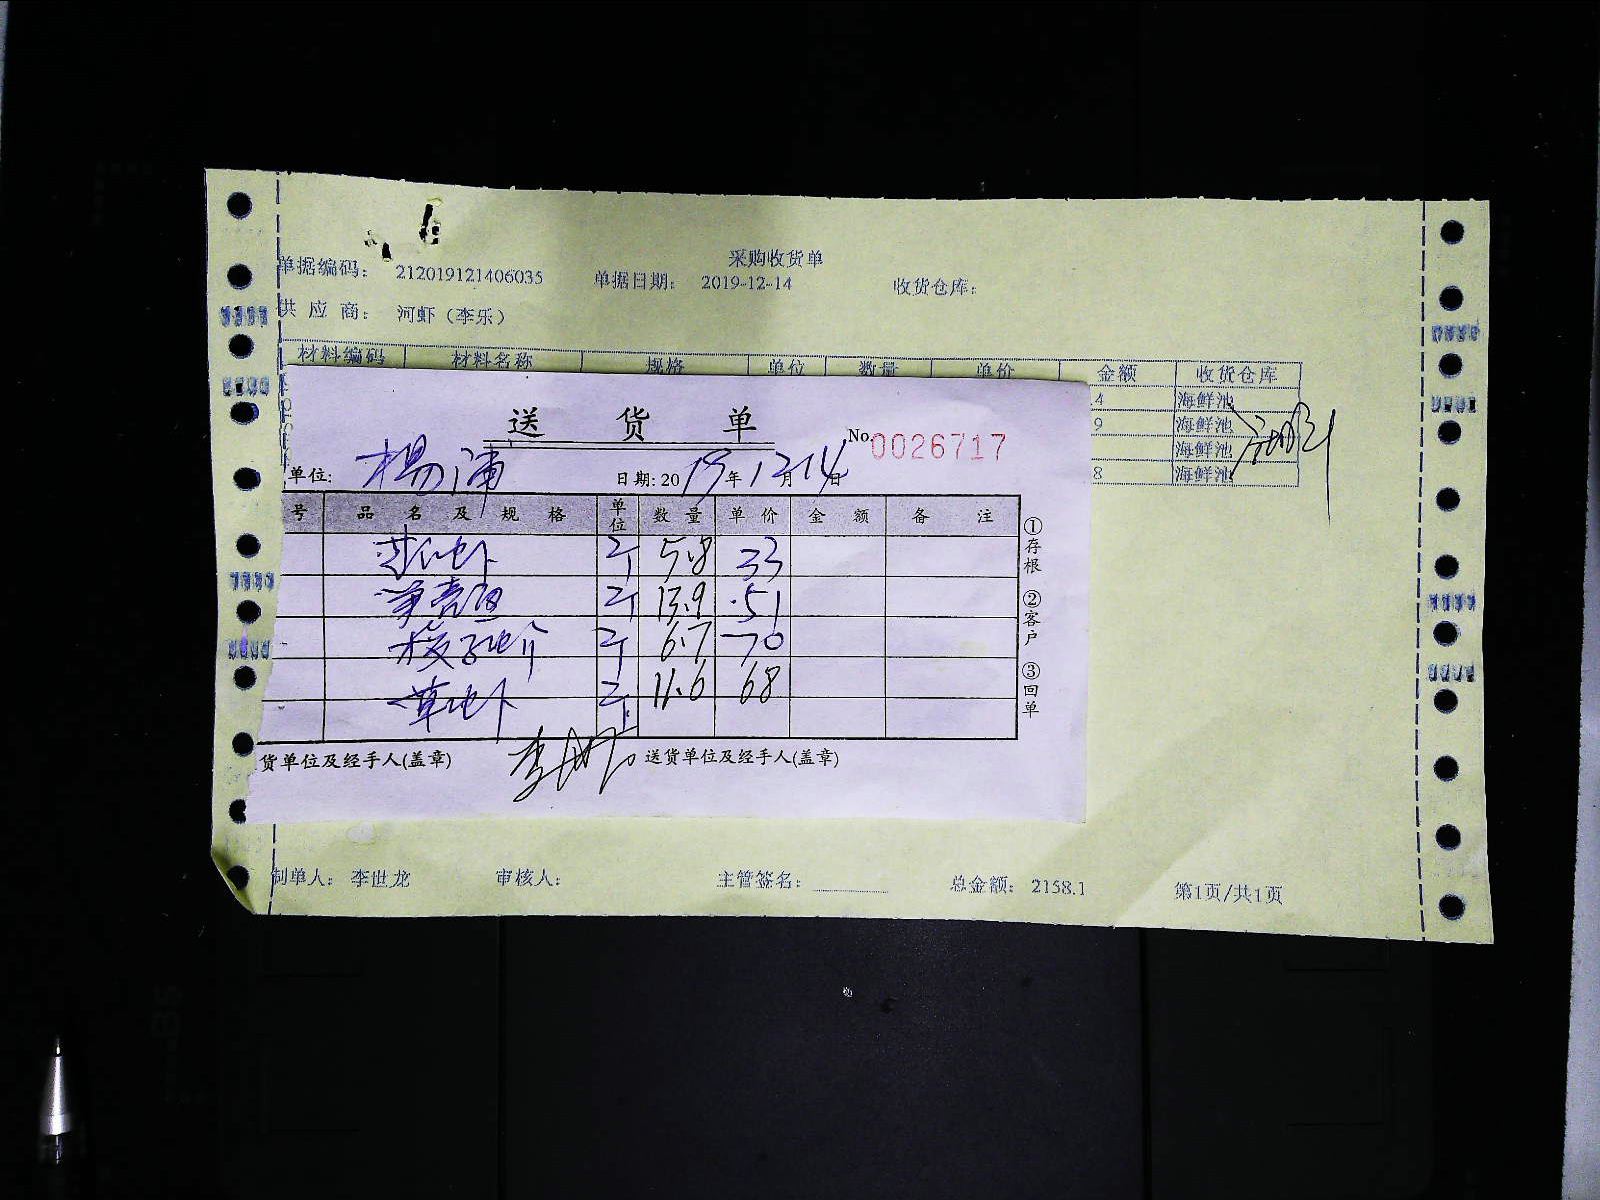 采购收货单
单据编码： 212019121406035 单据日期： 2019-12-14 收货仓库：
供 应 商： 河虾（李乐）
材料编码 材料名称 规格 单位 数量 单价 金额 收货仓库
4 海鲜池
9 海鲜池
海鲜池
8 海鲜池
送 货 单
No. 0026717
单位: 杨浦 日期: 2019年12月14日
号 品 名 及 规 格 单位 数 量 单 价 金 额 备 注
斤 5.8 33
斤 13.9 51
斤 6.7 70
草虾 斤 11.6 68
①存根 ②客户 ③回单
货单位及经手人(盖章) 送货单位及经手人(盖章)
制单人： 李世龙 审核人： 主管签名： 总金额： 2158.1 第1页/共1页